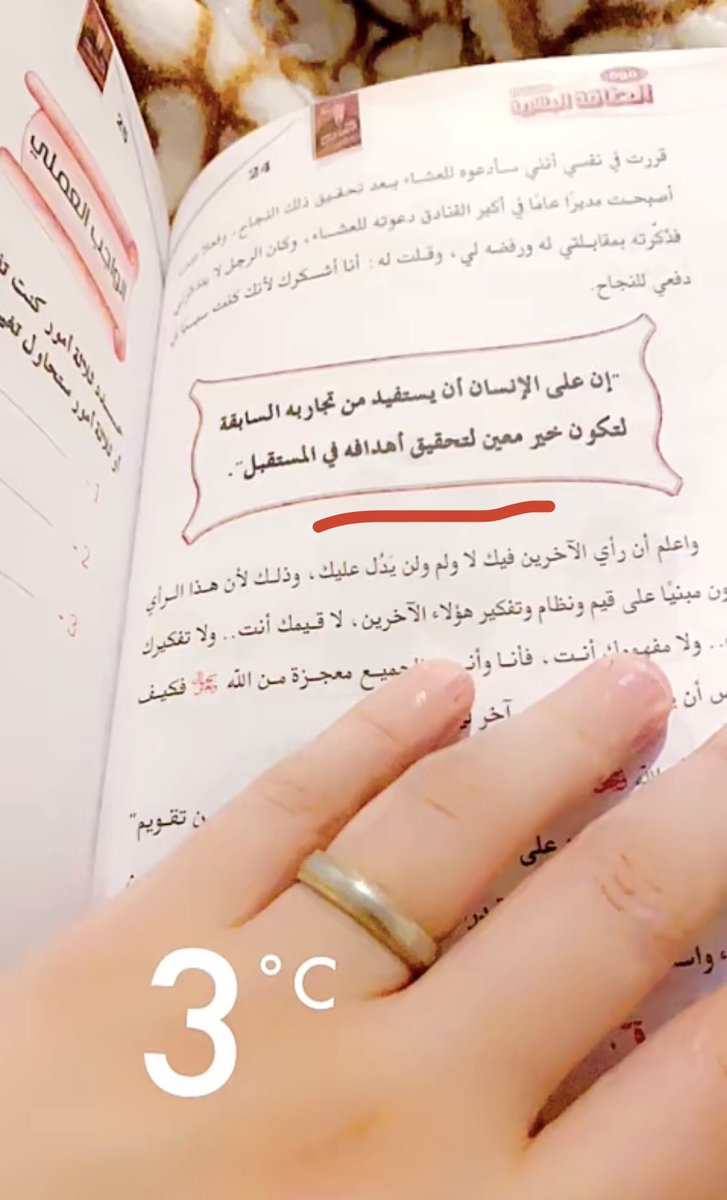 24
قررت في نفسي أنني سأدعوه للعشاء بعد تحقيق ذلك النجاح، وفعلا
أصبحت مديرًا عامًا في أكبر الفنادق دعوته للعشاء، وكان الرجل لا
فذكّرته بمقابلتي له ورفضه لي، وقلت له: أنا أشكرك لأنك كنت سببًا في
دفعي للنجاح.
"إن على الإنسان أن يستفيد من تجاربه السابقة
لتكون خير معين لتحقيق أهدافه في المستقبل".
واعلم أن رأي الآخرين فيك لا ولم ولن يَدُل عليك، وذلك لأن هذا الرأي
مبنيًا على قيم ونظام وتفكير هؤلاء الآخرين، لا قيمك أنت.. ولا تفكيرك
.. ولا مفهومك أنت، فأنا وأنت والجميع معجزة من الله فكيف
أن
آخر
الله
تقويم"
على
25
الواجب العملي
حدد ثلاثة أمور كنت
أو ثلاثة أمور ستحاول
1-
2-
3-
3°C